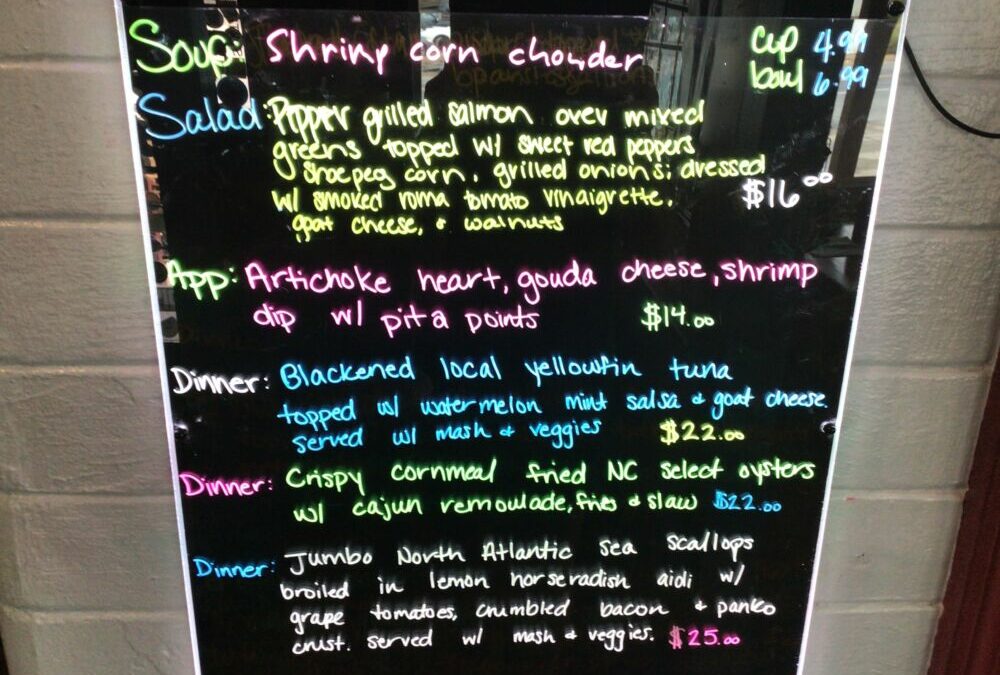 Soup: Shrimp corn chowder cup 4.99
bowl 6.99
Salad: Pepper grilled salmon over mixed
greens topped w/ sweet red peppers
shoepeg corn, grilled onions; dressed
w/ smoked roma tomato vinaigrette, $16.00
goat cheese, & walnuts
App: Artichoke heart, gouda cheese, shrimp
dip w/ pita points $14.00
Dinner: Blackened local yellowfin tuna
topped w/ watermelon mint salsa & goat cheese.
served w/ mash & veggies $22.00
Dinner: Crispy cornmeal fried NC select oysters
w/ cajun remoulade, fries & slaw $22.00
Dinner: Jumbo North Atlantic sea scallops
broiled in lemon horseradish aioli w/
grape tomatoes, crumbled bacon & panko
crust. served w/ mash & veggies. $25.00